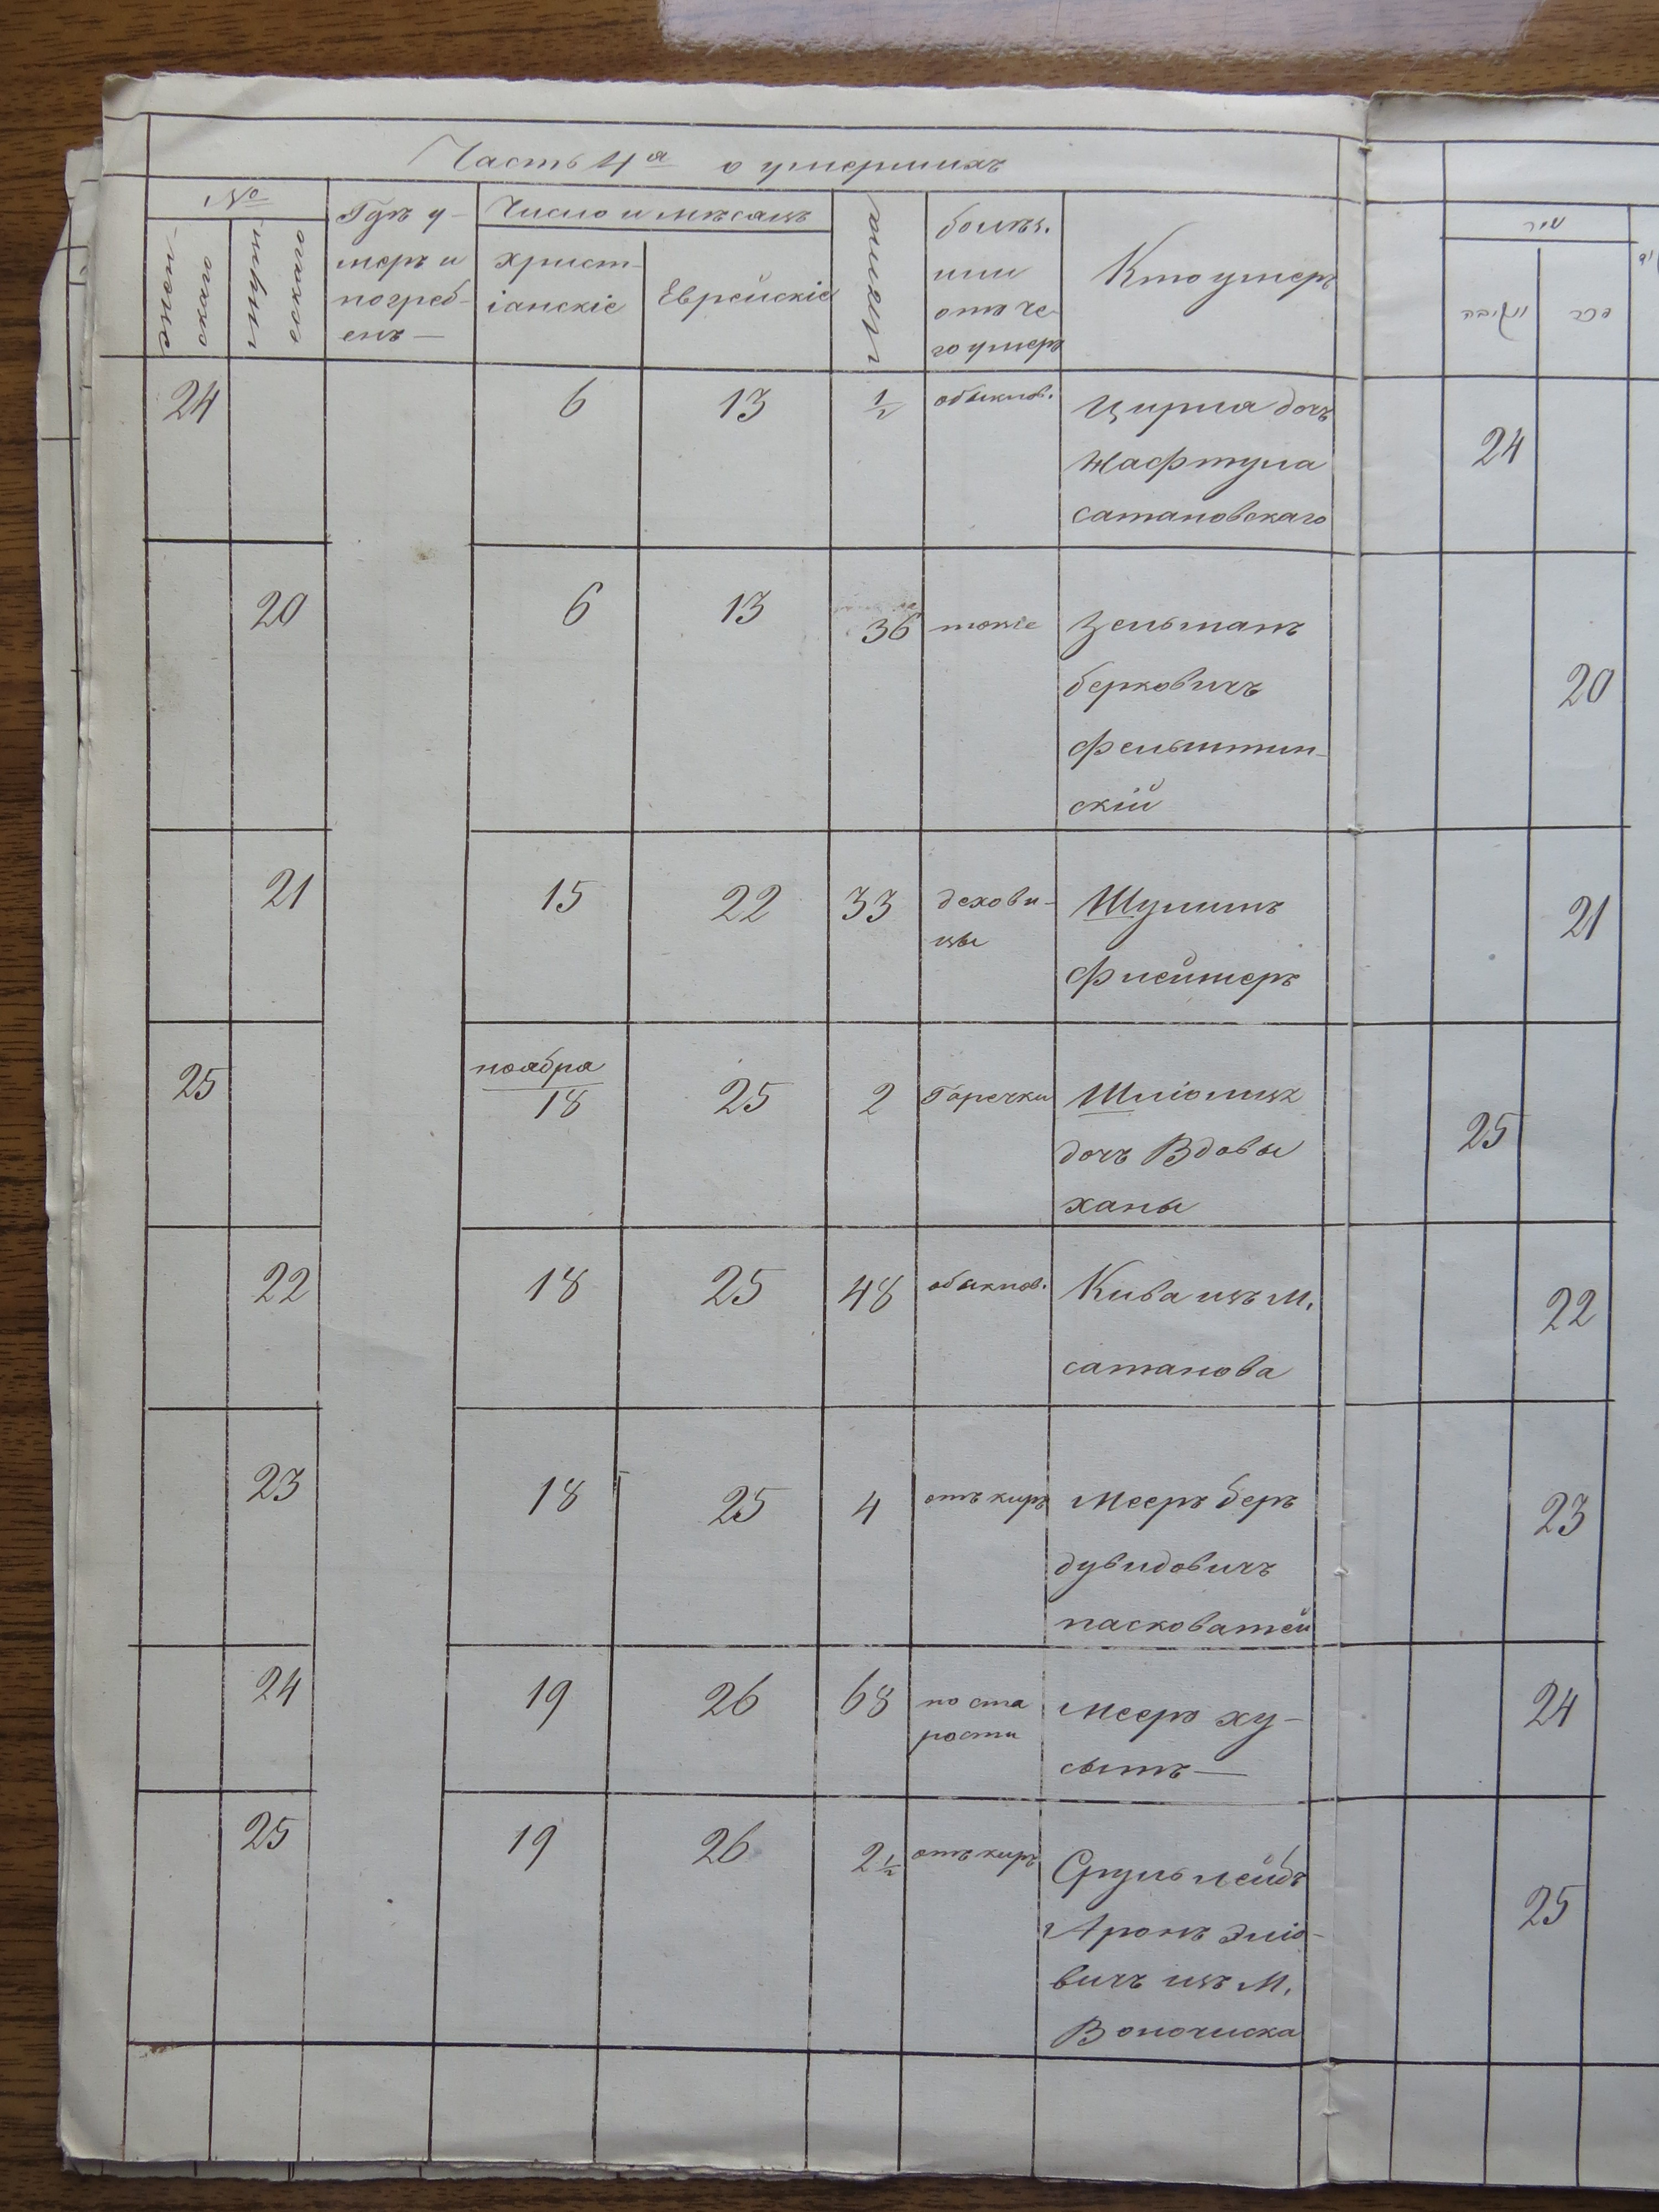 Часть 4я о умершихъ
№
женскаго
мужескаго
Гдѣ у-
меръ и
погреб-
енъ —
Число и мѣсяцъ
Христ-
іанскіе
Еврейскіе
Лѣта
болѣз.
или
отъ че-
го умеръ
Кто умеръ
24 6 13 1/2 обыкнов. Цирля дочь
Нафтула
сатановскаго
20 6 13 36 тоже Зельманъ
берковичъ
фельштин-
скій
21 15 22 33 Шулимъ
флейшеръ
25 ноября
18 25 2 Горечки
дочь Вдовы
ханы
22 18 25 48 обыкнов. Кива изъ М.
сатанова
23 18 25 4 отъ кирь Мееръ беръ
дувидовичъ
пасковатей
24 19 26 68 по ста
рости
Мееръ ху-
сытъ —
25 19 26 2 1/2 отъ кирь Сруль лейбъ
Аронъ Эліо-
вичъ изъ М.
Волочиска
24
20
21
25
22
23
24
25